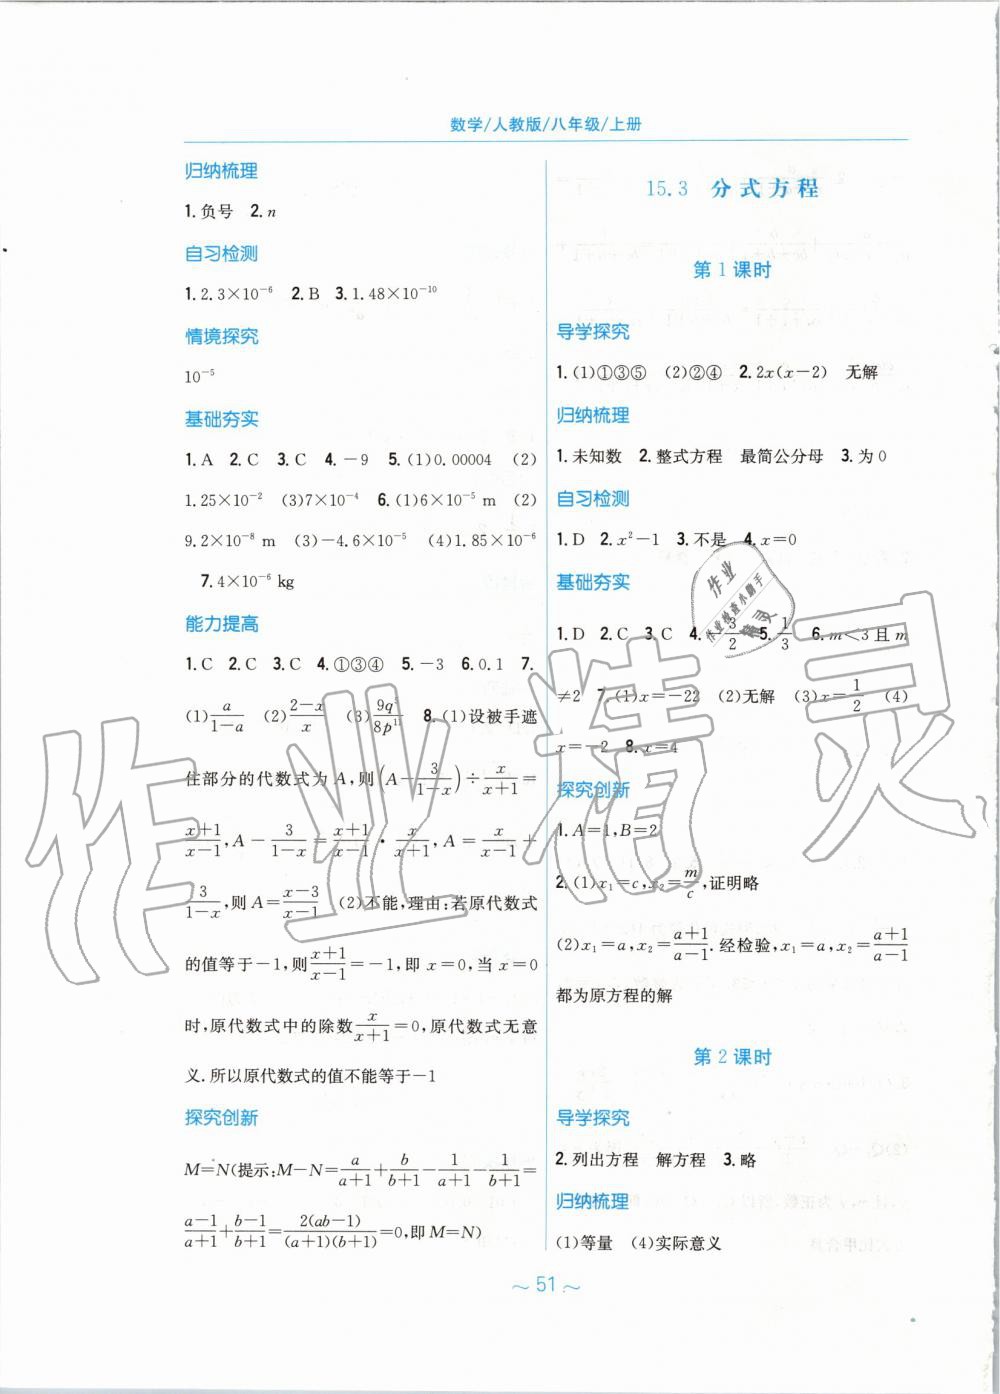 数学/人教版/八年级/上册
归纳梳理
1.负号 2.n
自习检测
1.2.3×10⁻⁶ 2.B 3.1.48×10⁻¹⁰
情境探究
10⁻⁵
基础夯实
1.A 2.C 3.C 4.－9 5.(1)0.00004 (2)
1.25×10⁻² (3)7×10⁻⁴ 6.(1)6×10⁻⁵ m (2)
9.2×10⁻⁸ m (3)－4.6×10⁻⁵ (4)1.85×10⁻⁶
7.4×10⁻⁶ kg
能力提高
1.C 2.C 3.C 4.①③④ 5.－3 6.0.1 7.
(1)a/(1－a) (2)(2－x)/x (3) 8.(1)设被手遮
住部分的代数式为A,则(A－3/(1－x))÷x/(x+1)=
(x+1)/(x－1),A－3/(1－x)=(x+1)/(x－1)·x/(x+1),A=x/(x－1)+
3/(1－x),则A=(x－3)/(x－1) (2)不能,理由:若原代数式
的值等于－1,则(x+1)/(x－1)=－1,即x=0,当x=0
时,原代数式中的除数x/(x+1)=0,原代数式无意
义.所以原代数式的值不能等于－1
探究创新
M=N(提示:M－N=a/(a+1)+b/(b+1)－1/(a+1)－1/(b+1)=
(a－1)/(a+1)+(b－1)/(b+1)=2(ab－1)/((a+1)(b+1))=0,即M=N)
15.3 分式方程
第1课时
导学探究
1.(1)①③⑤ (2)②④ 2.2x(x－2) 无解
归纳梳理
1.未知数 2.整式方程 最简公分母 3.为0
自习检测
1.D 2.x²－1 3.不是 4.x=0
基础夯实
1.D 2.C 3.C 4.－3/2 5.1/3 6.m<3且m
≠2 7.(1)x=－22 (2)无解 (3)x=1/2 (4)
x=－2 8.x=4
探究创新
1.A=1,B=2
2.(1)x₁=c,x₂=m/c,证明略
(2)x₁=a,x₂=(a+1)/(a－1).经检验,x₁=a,x₂=(a+1)/(a－1)
都为原方程的解
第2课时
导学探究
2.列出方程 解方程 3.略
归纳梳理
(1)等量 (4)实际意义
～51～
作业精灵
作业
作业检查小助手
精灵